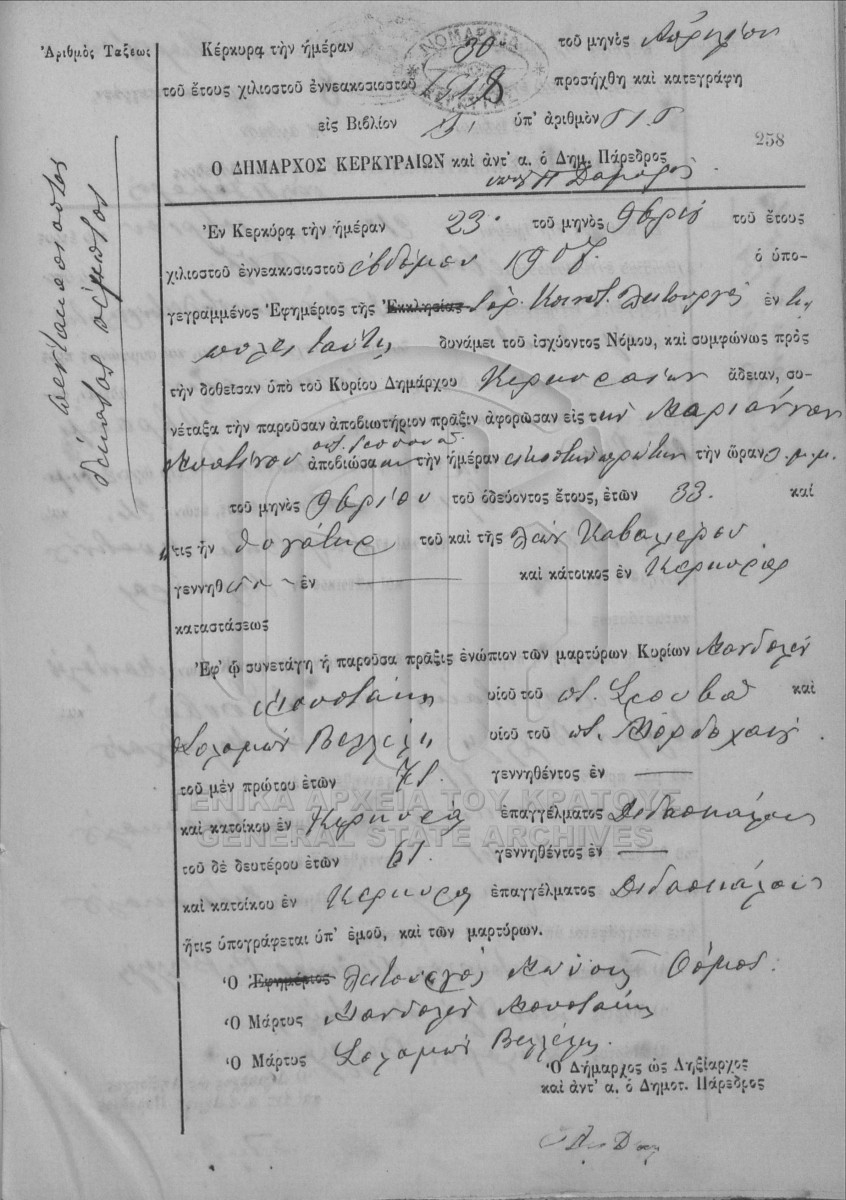 Ἀριθμὸς Τάξεως
Κέρκυρα τὴν ἡμέραν 30 τοῦ μηνὸς Ἀπριλίου
ΝΟΜΑΡΧΙΑ
τοῦ ἔτους χιλιοστοῦ ἐννεακοσιοστοῦ προσήχθη καὶ κατεγράφη
εἰς Βιβλίον ὑπ' ἀριθμὸν 515
258
Ο ΔΗΜΑΡΧΟΣ ΚΕΡΚΥΡΑΙΩΝ καὶ ἀντ' α. ὁ Δημ. Πάρεδρος
πεντακοσιοστὸς
δέκατος πέμπτος
Ἐν Κερκύρᾳ τὴν ἡμέραν 23 τοῦ μηνὸς 9βρίου τοῦ ἔτους
χιλιοστοῦ ἐννεακοσιοστοῦ ἑβδόμου 1907. ὁ ὑπο-
γεγραμμένος Ἐφημέριος τῆς Ἐκκλησίας Ἰσρ. Κοινοτ. Λειτουργὸς ἐν τῇ
πόλει ταύτῃ δυνάμει τοῦ ἰσχύοντος Νόμου, καὶ συμφώνως πρὸς
τὴν δοθεῖσαν ὑπὸ τοῦ Κυρίου Δημάρχου Κερκυραίων ἄδειαν, συ-
νέταξα τὴν παροῦσαν ἀποβιωτήριον πρᾶξιν ἀφορῶσαν εἰς τὴν Μαριάνναν
ἀποβιώσασαν τὴν ἡμέραν εἰκοστὴν πρώτην τὴν ὥραν μ.μ.
τοῦ μηνὸς 9βρίου τοῦ ὁδεύοντος ἔτους, ἐτῶν 33. καὶ
ἥτις ἦν θυγάτηρ τοῦ καὶ τῆς Λεὼν Καβαλιέρου
γεννηθ ἐν — καὶ κάτοικος ἐν Κερκύρᾳ
καταστάσεως
Ἐφ' ᾧ συνετάγη ἡ παροῦσα πρᾶξις ἐνώπιον τῶν μαρτύρων Κυρίων Μανδολὲν
Μουστάκη υἱοῦ τοῦ ποτ. καὶ
Σολομὼν Βελλέλη υἱοῦ τοῦ ποτ. Μορδοχαῒ.
τοῦ μὲν πρώτου ἐτῶν γεννηθέντος ἐν —
καὶ κατοίκου ἐν Κερκύρᾳ ἐπαγγέλματος Διδασκάλου
τοῦ δὲ δευτέρου ἐτῶν 61. γεννηθέντος ἐν —
καὶ κατοίκου ἐν Κερκύρᾳ ἐπαγγέλματος Διδασκάλου
ἥτις ὑπογράφεται ὑπ' ἐμοῦ, καὶ τῶν μαρτύρων.
Ὁ Ἐφημέριος Λειτουργὸς Μωϋσῆς Όσμος.
Ὁ Μάρτυς Μανδολὲν Μουστάκης
Ὁ Μάρτυς Σολομὼν Βελλέλης.
Ὁ Δήμαρχος ὡς Ληξίαρχος
καὶ ἀντ' α. ὁ Δημοτ. Πάρεδρος
ΓΕΝΙΚΑ ΑΡΧΕΙΑ ΤΟΥ ΚΡΑΤΟΥΣ
GENERAL STATE ARCHIVES